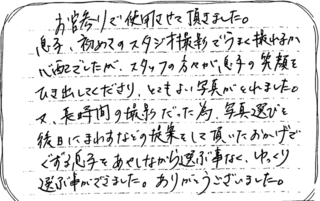 お宮参りで使用させて頂きました。
息子、初めてのスタジオ撮影でうまく撮れるか
心配でしたが、スタッフの方々が息子の笑顔を
ひき出してくださり、とてもよい写真がとれました。
又、長時間の撮影だった為、写真選びを
後日にまわすなどの提案をして頂いたおかげで
ぐずる息子をあやしながら選ぶ事なく、ゆっくり
選ぶ事ができました。ありがとうございました。